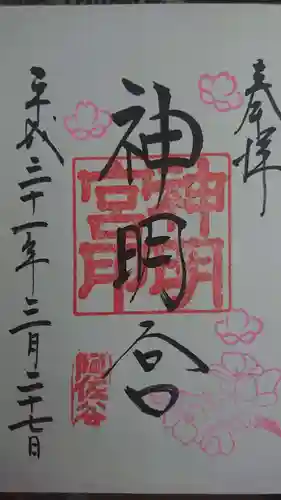 奉拝
神明宮
神明宮印
阿佐谷
平成三十一年三月二十七日